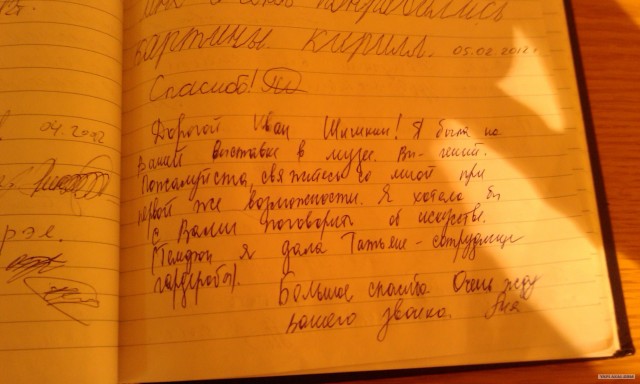 04.2012
рэл.
понравились
картины. Кирилл. 05.02.2012г.
Спасибо!
Дорогой Иван Шишкин! Я была на
Вашей выставке в музее. Вы - гений.
Пожалуйста, свяжитесь со мной при
первой же возможности. Я хотела бы
с Вами поговорить об искусстве.
(Телефон я дала Татьяне - сотруднице
гардероба).
Большое спасибо. Очень жду
вашего звонка.